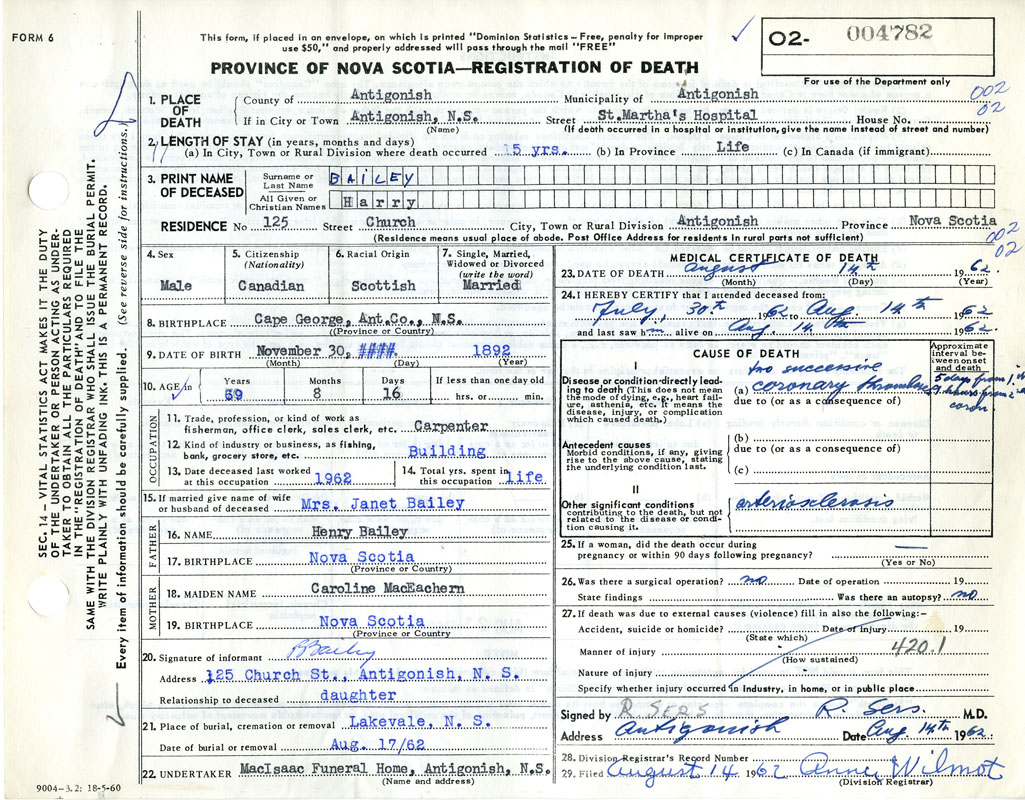 FORM 6
This form, if placed in an envelope, on which is printed "Dominion Statistics—Free, penalty for improper
use $50," and properly addressed will pass through the mail "FREE"
O2- 004782
For use of the Department only
PROVINCE OF NOVA SCOTIA—REGISTRATION OF DEATH
002
02
1. PLACE OF DEATH
County of Antigonish Municipality of Antigonish
If in City or Town Antigonish, N.S. Street St.Martha's Hospital House No.
(Name) (If death occurred in a hospital or institution, give the name instead of street and number)
2. LENGTH OF STAY (in years, months and days)
(a) In City, Town or Rural Division where death occurred 15 yrs. (b) In Province Life (c) In Canada (if immigrant)
3. PRINT NAME OF DECEASED
Surname or Last Name BAILEY
All Given or Christian Names Harry
RESIDENCE No 125 Street Church City, Town or Rural Division Antigonish Province Nova Scotia
(Residence means usual place of abode. Post Office Address for residents in rural parts not sufficient)
002
02
4. Sex
Male
5. Citizenship (Nationality)
Canadian
6. Racial Origin
Scottish
7. Single, Married, Widowed or Divorced (write the word)
Married
8. BIRTHPLACE Cape George, Ant.Co., N.S.
(Province or Country)
9. DATE OF BIRTH November 30, 1892
(Month) (Day) (Year)
10. AGE in Years Months Days If less than one day old
69 8 16 hrs. or min.
OCCUPATION
11. Trade, profession, or kind of work as
fisherman, office clerk, sales clerk, etc. Carpenter
12. Kind of industry or business, as fishing,
bank, grocery store, etc. Building
13. Date deceased last worked at this occupation 1962
14. Total yrs. spent in this occupation life
15. If married give name of wife
or husband of deceased Mrs. Janet Bailey
FATHER
16. NAME Henry Bailey
17. BIRTHPLACE Nova Scotia
(Province or Country)
MOTHER
18. MAIDEN NAME Caroline MacEachern
19. BIRTHPLACE Nova Scotia
(Province or Country)
20. Signature of informant Bailey
Address 125 Church St., Antigonish, N. S.
Relationship to deceased daughter
21. Place of burial, cremation or removal Lakevale, N. S.
Date of burial or removal Aug. 17/62
22. UNDERTAKER MacIsaac Funeral Home, Antigonish, N.S.
(Name and address)
9004—3.2: 18-5-60
MEDICAL CERTIFICATE OF DEATH
23. DATE OF DEATH August 14th 1962.
(Month) (Day) (Year)
24. I HEREBY CERTIFY that I attended deceased from:
July, 30th 1962 to Aug. 14th 1962
and last saw him alive on Aug. 14th 1962.
CAUSE OF DEATH
Approximate interval between onset and death
I
Disease or condition directly leading to death (This does not mean
the mode of dying, e.g., heart failure, asthenia, etc. It means the
disease, injury, or complication
which caused death.)
two successive
(a) coronary thrombosis
due to (or as a consequence of)
5 days from 1.
hours from 2
Antecedent causes
Morbid conditions, if any, giving
rise to the above cause, stating
the underlying condition last.
(b)
due to (or as a consequence of)
(c)
II
Other significant conditions
contributing to the death, but not
related to the disease or condition
causing it.
arteriosclerosis
25. If a woman, did the death occur during
pregnancy or within 90 days following pregnancy? —
(Yes or No)
26. Was there a surgical operation? no Date of operation 19
State findings Was there an autopsy? no
27. If death was due to external causes (violence) fill in also the following:-
Accident, suicide or homicide? Date of injury 19
(State which)
Manner of injury 420.1
(How sustained)
Nature of injury
Specify whether injury occurred in Industry, in home, or in public place
Signed by R SERS R. Sers. M.D.
Address Antigonish Date Aug 14th 1962.
28. Division Registrar's Record Number
29. Filed August 14 1962 Anne Wilmot
(Division Registrar)
SEC. 14—VITAL STATISTICS ACT MAKES IT THE DUTY
OF THE UNDERTAKER OR PERSON ACTING AS UNDER-
TAKER TO OBTAIN ALL THE PARTICULARS REQUIRED
IN THE "REGISTRATION OF DEATH" AND TO FILE THE
SAME WITH THE DIVISION REGISTRAR WHO SHALL ISSUE THE BURIAL PERMIT.
WRITE PLAINLY WITH UNFADING INK. THIS IS A PERMANENT RECORD.
Every item of information should be carefully supplied. (See reverse side for instructions.)